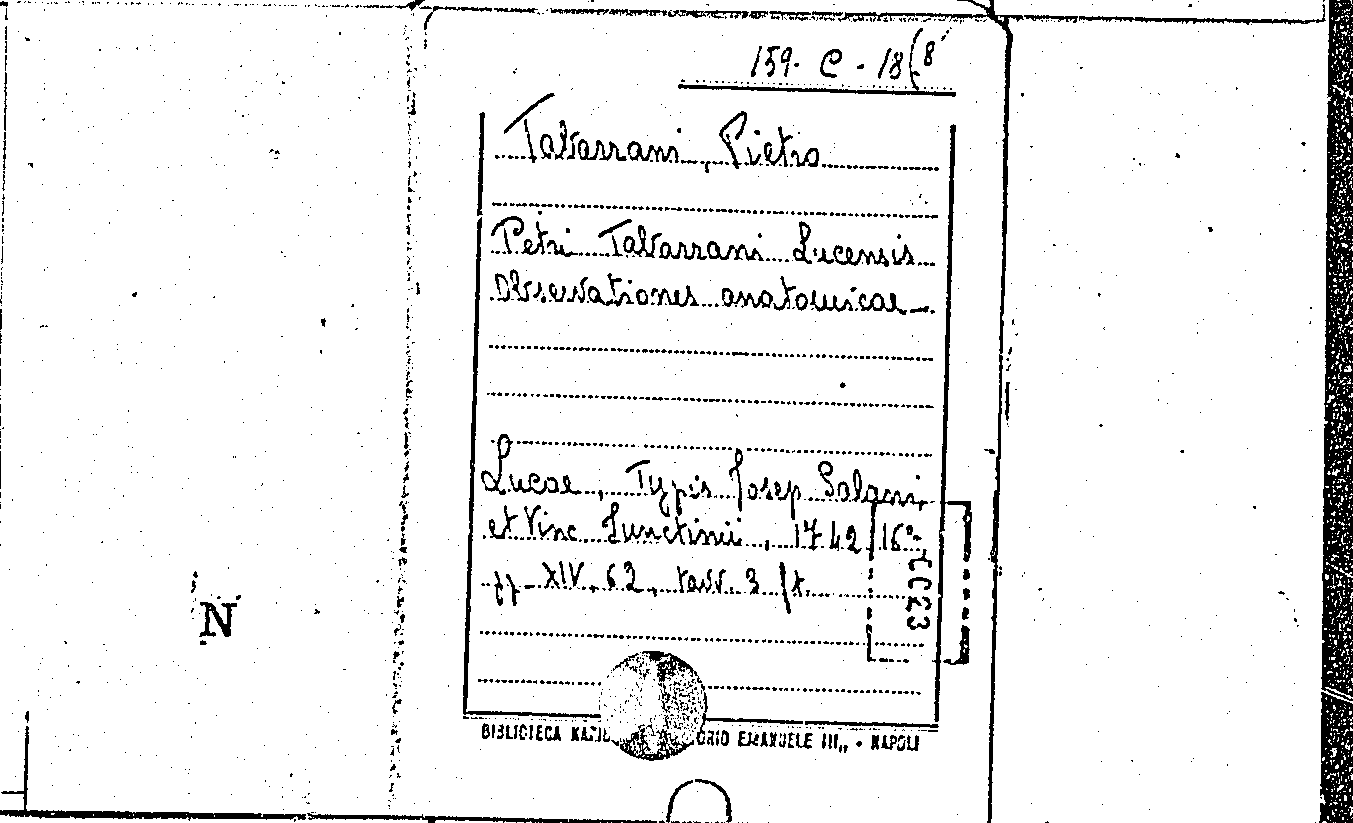 159. C. 18(8
Tabarrani, Pietro
Petri Tabarrani Lucensis
Observationes anatomicae_
Lucae, Typis Josep Salani,
et Vinc Junctinii, 1742, 16°,
pp. XIV, 62, tavv. 3 ft.
CC23
N
BIBLIOTECA NAZIO ORIO EMANUELE III„ • NAPOLI